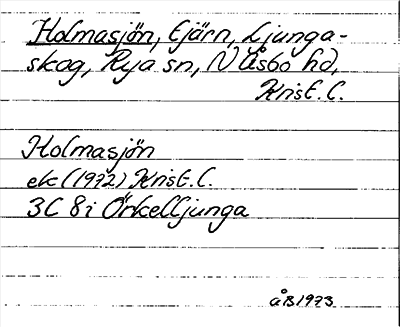 Holmasjön, tjärn, Ljunga-
skog, Rya sn, N Åsbo hd,
Krist. L.
Holmasjön
ek (1972) Krist. L.
3C 8i Örkelljunga
åB1973